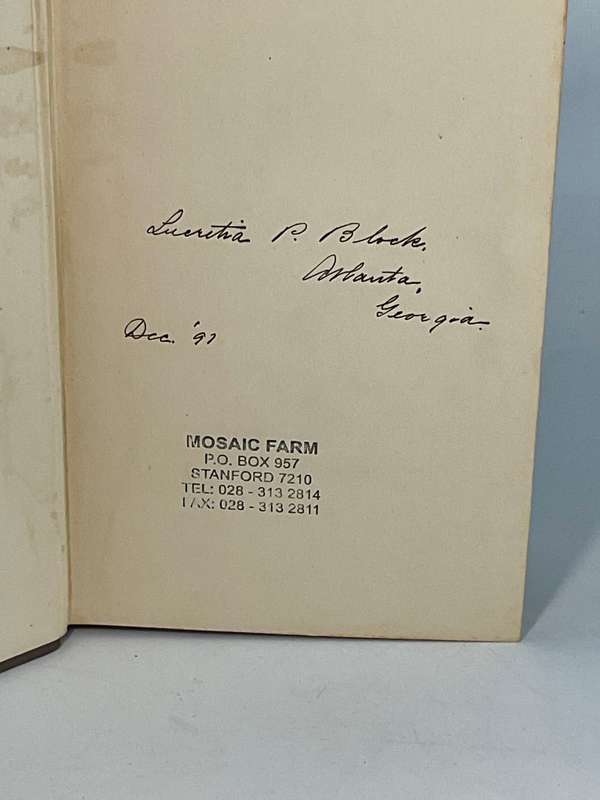 Lucretia P. Block,
Atlanta,
Georgia.
Dec. '97
MOSAIC FARM
P.O. BOX 957
STANFORD 7210
TEL: 028 - 313 2814
FAX: 028 - 313 2811